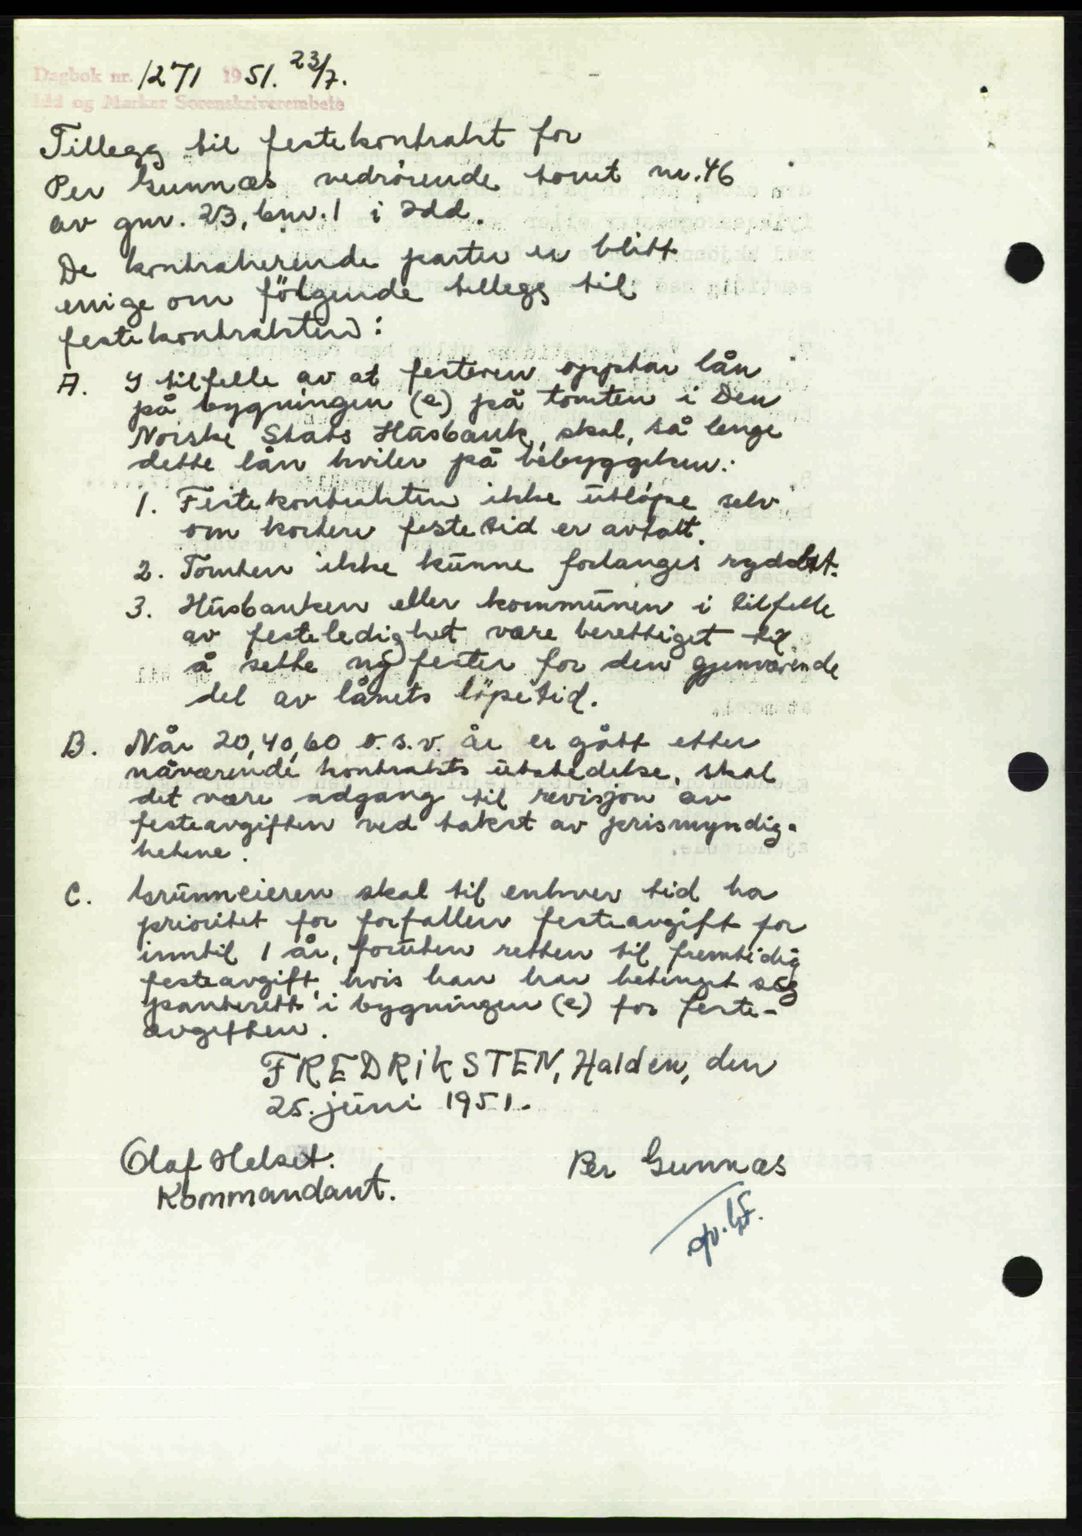 Dagbok nr. 1271 1951. 23/7.
Idd og Marker Sorenskriverembete
Tillegg til festekontrakt for
Per Gunnæs vedrörende tomt nr. 46
av gnr. 23, bnr. 1 i Idd.
De kontraherende parter er blitt
enige om fölgende tillegg til
festekontrakten:
A. I tilfelle av at festeren opptar lån
på bygningen (e) på tomten i Den
Norske Stats Husbank, skal, så lenge
dette lån hviler på bebyggelsen:
1. Festekontrakten ikke utlöpe selv
om kortere festetid er avtalt.
2. Tomten ikke kunne forlanges ryddet.
3. Husbanken eller kommunen i tilfelle
av festeledighet være berettiget til
å sette ny fester for den gjenværende
del av lånets löpetid.
B. Når 20, 40, 60 o.s.v. år er gått etter
nåværende kontrakts utstedelse, skal
det være adgang til revisjon av
festeavgiften ved takst av prismyndig-
hetene.
C. Grunneieren skal til enhver tid ha
prioritet for forfallen festeavgift for
inntil 1 år, foruten retten til fremtidig
festeavgift, hvis han har betinget seg
panterett i bygningen (e) for feste-
avgiften.
FREDRIKSTEN, Halden, den
25. juni 1951.
Olaf Helset. Per Gunnæs
Kommandant.